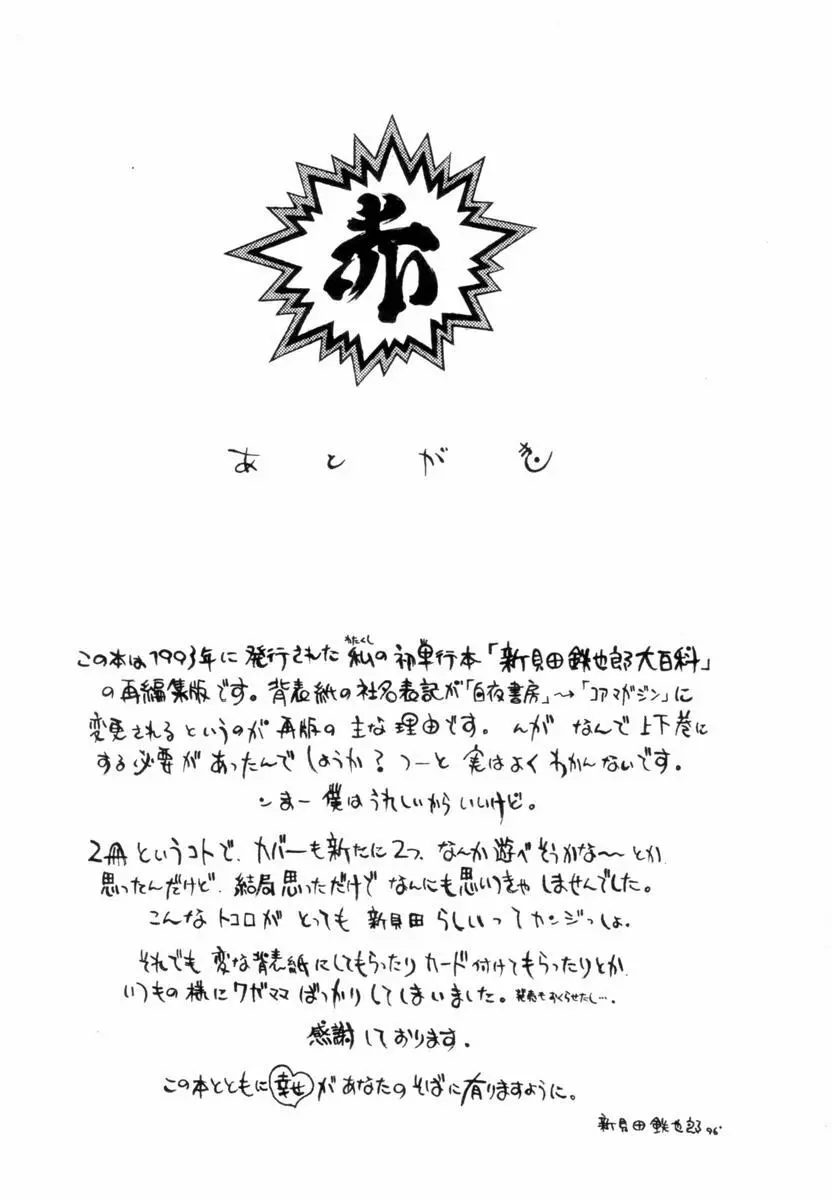 赤
あとがき
この本は1993年に発行された私の初単行本「新貝田鉄也郎大百科」
わたくし
の再編集版です。背表紙の社名表記が「白夜書房」→「コアマガジン」に
変更されるというのが再版の主な理由です。んが なんで上下巻に
する必要があったんでしょうか? つーと 実はよくわかんないです。
ンまー 僕はうれしいからいいけど。
2冊というコトで、カバーも新たに2つ、なんか遊べそうかな〜とか
思ったんだけど、結局思っただけでなんにも思いつきゃしませんでした。
こんなトコロがとっても新貝田らしいってカンジっしょ。
それでも変な背表紙にしてもらったりカード付けてもらったりとか
いつもの様にワガママばっかりしてしまいました。発売もおくらせたし…。
感謝しております。
この本とともに幸せがあなたのそばに有りますように。
新貝田鉄也郎96'